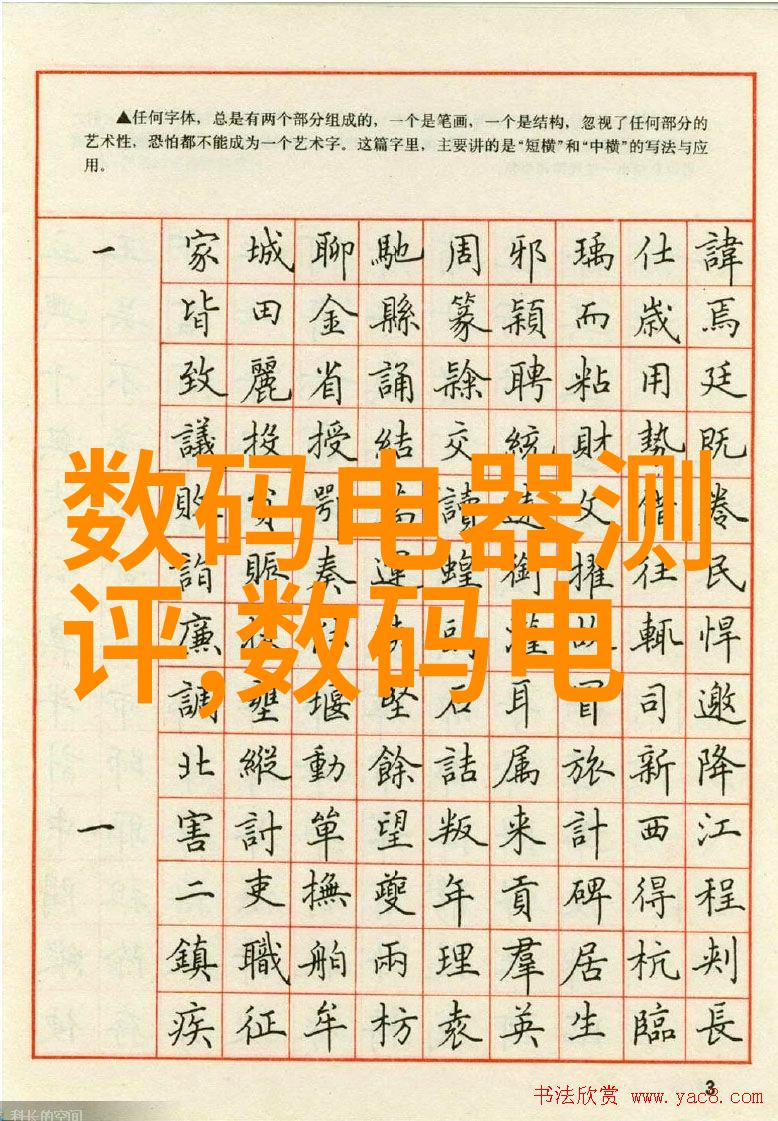 ▲任何字体，总是有两个部分组成的，一个是笔画，一个是结构，忽视了任何部分的
艺术性，恐怕都不能成为一个艺术字。这篇字里，主要讲的是“短横”和“中横”的写法与应
用。
一 家 城 聊 馳 周 邪 瑀 仕 諱
皆 田 金 縣 篆 穎 而 歲 焉
致 麗 省 誦 聘 粘 用 廷
議 投 授 結 交 統 財 勢 既
讀 文 借
数码电器测
詣 賑 奏 運 蝗 銜 擢 往 民
廉 輒 悍
评,数码电
調 壅 堰 堅 石 耳 冒 司 邀
北 縱 動 餘 詰 属 旅 新 降
一 害 討 單 望 叛 来 計 西 江
二 吏 撫 夔 年 貢 碑 得 程
鎮 職 舶 兩 理 羣 居 杭 刺
疾 征 牟 枋 袁 英 生 臨 長
3
书法欣赏 www.yac8.com
科长的空间